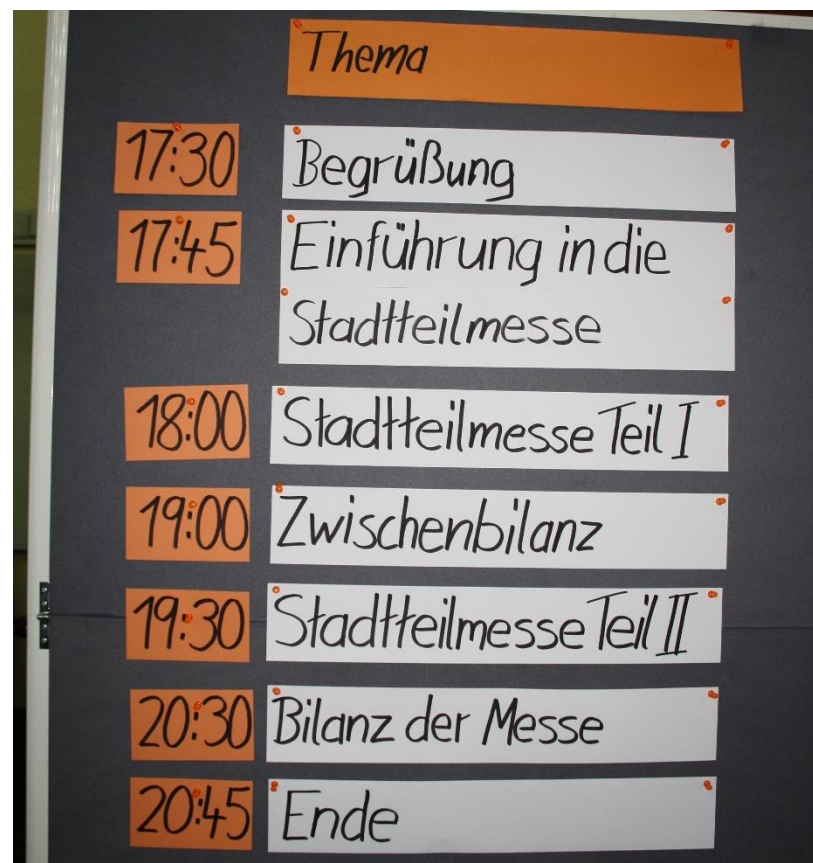 Thema
17:30 Begrüßung
17:45 Einführung in die
Stadtteilmesse
18:00 Stadtteilmesse Teil I
19:00 Zwischenbilanz
19:30 Stadtteilmesse Teil II
20:30 Bilanz der Messe
20:45 Ende